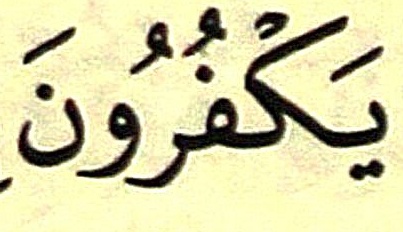 يَكْفُرُونَ